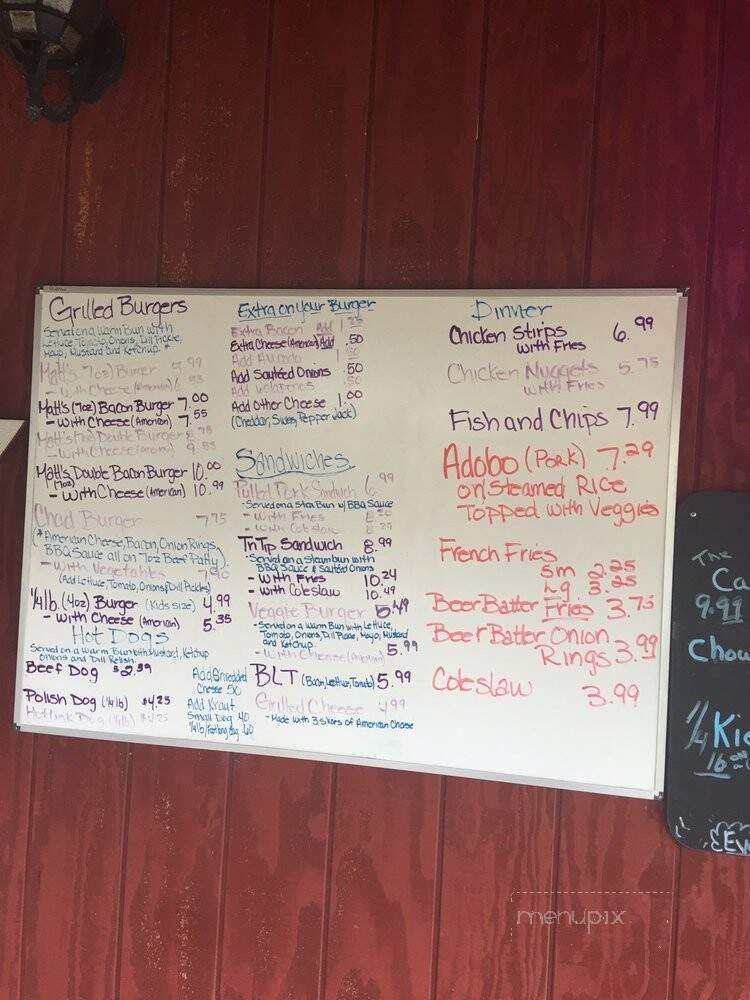 Grilled Burgers
Served on a warm Bun with
Lettuce, Tomato, Onions, Dill Pickle,
Mayo, Mustard and Ketchup.
Matt's (7oz) Burger 5.99
- with Cheese (American)
Matt's (7oz) Bacon Burger 7.00
- with Cheese (American) 7.55
Matt's (7oz) Double Burger
- with Cheese (American)
Matt's Double Bacon Burger 10.00
(7oz)
- with Cheese (American) 10.99
Chad Burger 7.75
(*American Cheese, Bacon, Onion Rings,
BBQ Sauce all on 7oz Beef Patty)
- with Vegetables
(Add Lettuce, Tomato, Onions & Dill Pickles)
1/4 lb. (4oz) Burger (Kids size) 4.99
- with Cheese (American) 5.35
Hot Dogs
Served on a warm Bun with Mustard, Ketchup
Onions and Dill Relish.
Beef Dog
Polish Dog (1/4 lb) $4.25
Hot Link Dog (1/4 lb) $4.25
Add Shredded
Cheese 50
Add Kraut
Small Dog 40
1/4 lb/Footlong dog 60
Extra on your Burger
Extra Bacon Add
Extra Cheese (American) Add .50
Add Avocado
Add Sautéed Onions .50
Add Jalapenos .50
Add other Cheese 1.00
(Cheddar, Swiss, Pepper Jack)
Sandwiches
Pulled Pork Sandwich 6.99
- Served on a Sta Bun w/ BBQ Sauce
- with Fries
- with Coleslaw
Tri Tip Sandwich 8.99
- Served on a Steam bun with
BBQ Sauce & Sautéed Onions
- with Fries 10.24
- with Coleslaw 10.49
Veggie Burger 5.49
- Served on a warm Bun with Lettuce,
Tomato, Onions, Dill Pickle, Mayo, Mustard
and Ketchup.
- with Cheese (American) 5.99
BLT (Bacon, Lettuce, Tomato) 5.99
Grilled Cheese 4.99
- Made with 3 slices of American Cheese
Dinner
Chicken Strips 6.99
with Fries
Chicken Nuggets 5.75
with Fries
Fish and Chips 7.99
Adobo (Pork) 7.29
on Steamed Rice
Topped with Veggies
French Fries
Sm 2.25
Lg 3.25
Beer Batter Fries 3.75
Beer Batter Onion
Rings 3.99
Coleslaw 3.99
The
Ca
9.99
Chow
1/4 Kic
16
menupix